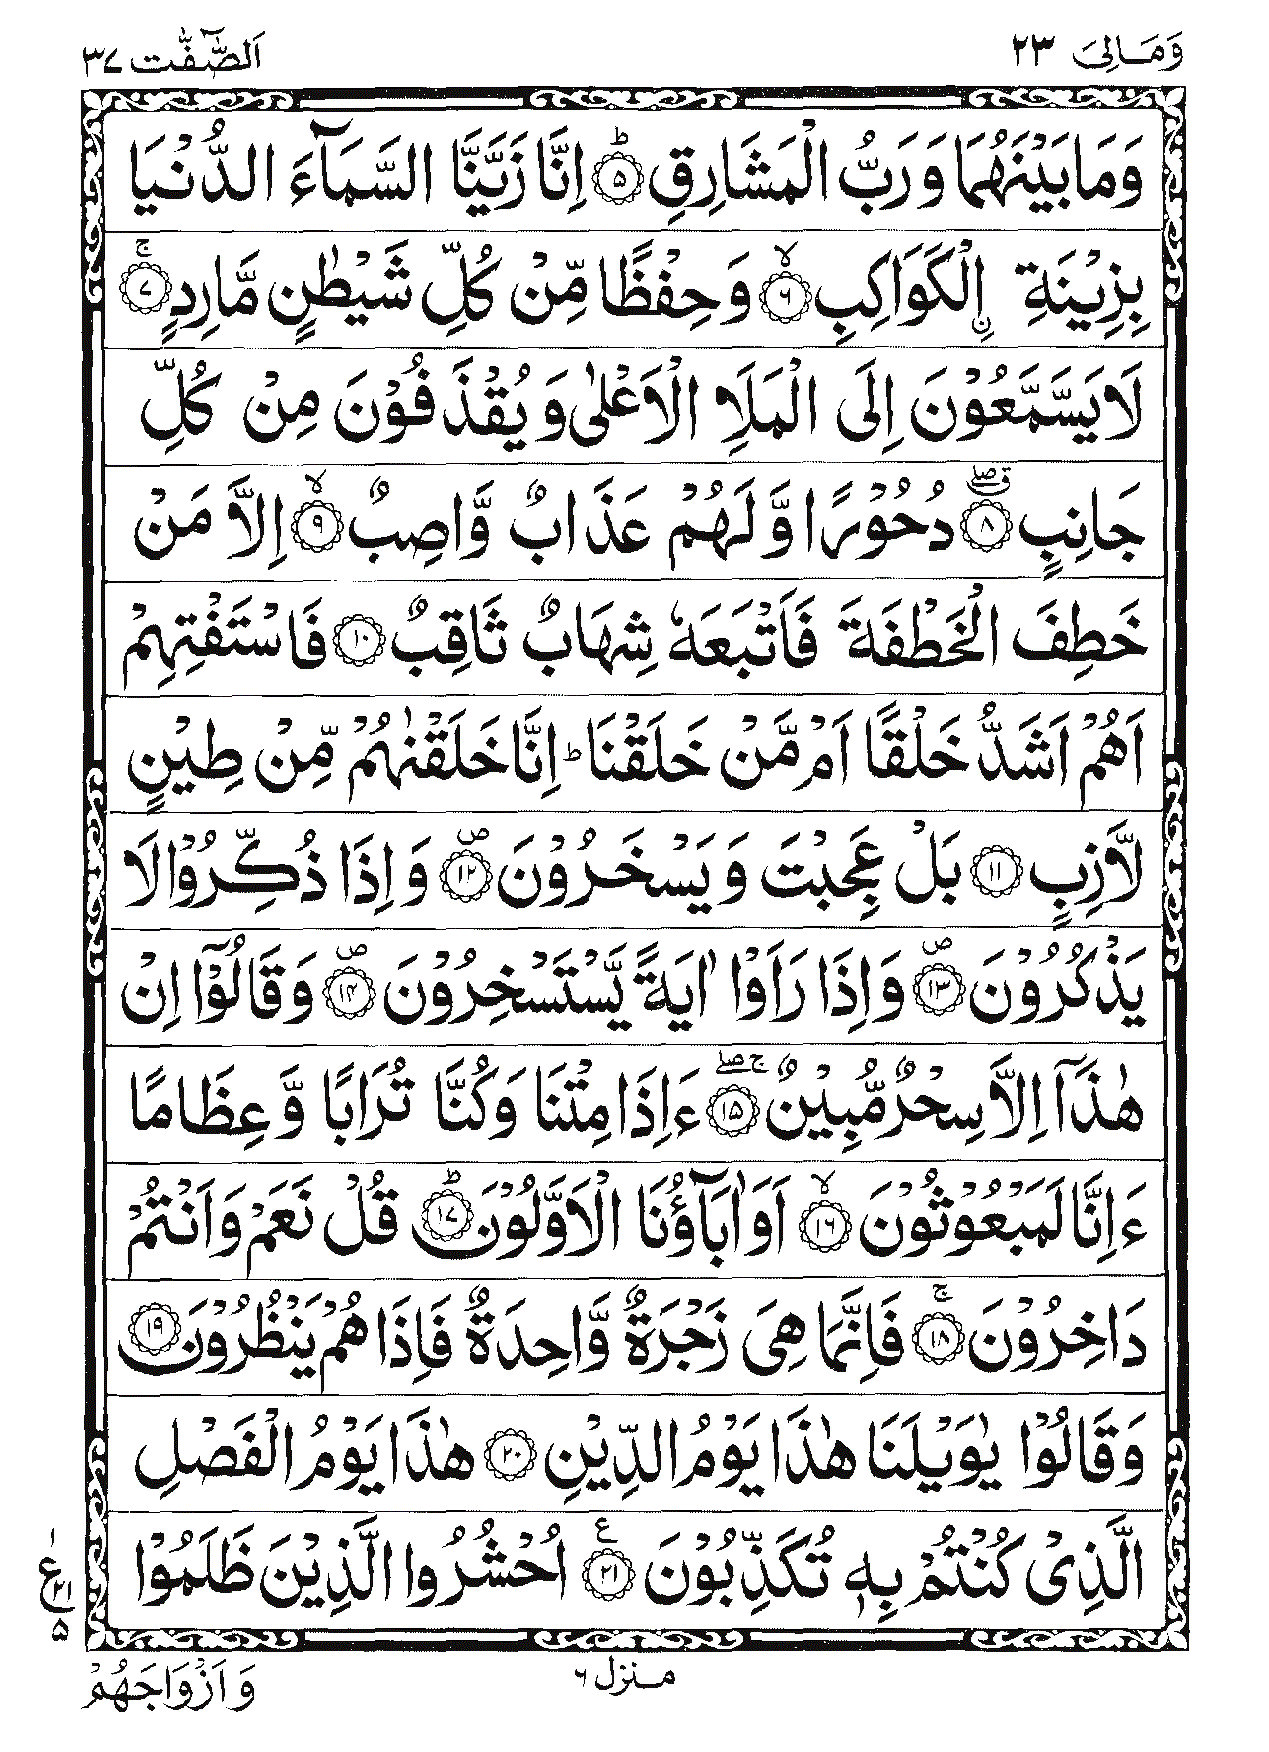 وَمَالِیَ ٢٣ اَلصّٰٓفّٰت ٣٧
وَمَا بَیْنَهُمَا وَ رَبُّ الْمَشَارِقِ ۵ؕ اِنَّا زَیَّنَّا السَّمَآءَ الدُّنْیَا
بِزِیْنَةِ ِ۟الْكَوَاكِبِ ۶ۙ وَ حِفْظًا مِّنْ كُلِّ شَیْطٰنٍ مَّارِدٍ ۷ۚ
لَا یَسَّمَّعُوْنَ اِلَی الْمَلَاِ الْاَعْلٰی وَ یُقْذَفُوْنَ مِنْ كُلِّ
جَانِبٍ ۸ۗۖ دُحُوْرًا وَّ لَهُمْ عَذَابٌ وَّاصِبٌ ۹ۙ اِلَّا مَنْ
خَطِفَ الْخَطْفَةَ فَاَتْبَعَهٗ شِهَابٌ ثَاقِبٌ ۱۰ فَاسْتَفْتِهِمْ
اَهُمْ اَشَدُّ خَلْقًا اَمْ مَّنْ خَلَقْنَا ؕ اِنَّا خَلَقْنٰهُمْ مِّنْ طِیْنٍ
لَّازِبٍ ۱۱ بَلْ عَجِبْتَ وَ یَسْخَرُوْنَ ۱۲۪ وَ اِذَا ذُكِّرُوْا لَا
یَذْكُرُوْنَ ۱۳۪ وَ اِذَا رَاَوْا اٰیَةً یَّسْتَسْخِرُوْنَ ۱۴۪ وَ قَالُوْۤا اِنْ
هٰذَاۤ اِلَّا سِحْرٌ مُّبِیْنٌ ۱۵ۚۖ ءَاِذَا مِتْنَا وَ كُنَّا تُرَابًا وَّ عِظَامًا
ءَاِنَّا لَمَبْعُوْثُوْنَ ۱۶ۙ اَوَ اٰبَآؤُنَا الْاَوَّلُوْنَ ۱۷ؕ قُلْ نَعَمْ وَ اَنْتُمْ
دَاخِرُوْنَ ۱۸ۚ فَاِنَّمَا هِیَ زَجْرَةٌ وَّاحِدَةٌ فَاِذَا هُمْ یَنْظُرُوْنَ ۱۹
وَ قَالُوْا یٰوَیْلَنَا هٰذَا یَوْمُ الدِّیْنِ ۲۰ هٰذَا یَوْمُ الْفَصْلِ
الَّذِیْ كُنْتُمْ بِهٖ تُكَذِّبُوْنَ ۲۱ع اُحْشُرُوا الَّذِیْنَ ظَلَمُوْا
۱ ع ۲۱ ۵
منزل ۶
وَ اَزْوَاجَهُمْ